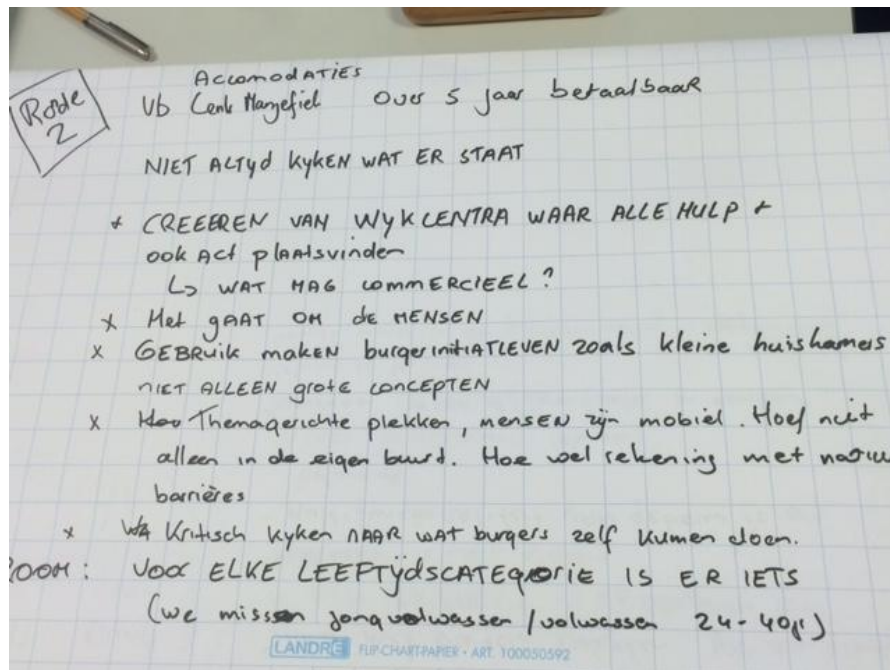 Ronde
2
Accomodaties
Vb Over 5 jaar betaalbaar
NIET ALTYd KyKEN WAT ER STAAT
* CREEEREN VAN WyKCENTRA WAAR ALLE HULP +
ook Act plaatsvinden
↳ WAT MAG COMMERCIEEL?
x Het gAAT OM de MENSEN
x GEBRUIK maken burgerinitiatieven zoals kleine huiskamers
NIET ALLEEN grote CONCEPTEN
x Themagerichte plekken, mensen zijn mobiel. Hoef niet
alleen in de eigen buurt. Hoe wel rekening met
barrières
x Kritisch kyken NAAR WAT burgers zelf kunnen doen.
OOM: VOOR ELKE LEEFTYdSCATEgorie IS ER IETS
(we missen jongvolwassen / volwassen 24-40jr)
LANDRÉ FLIP-CHART-PAPIER - ART. 100050592